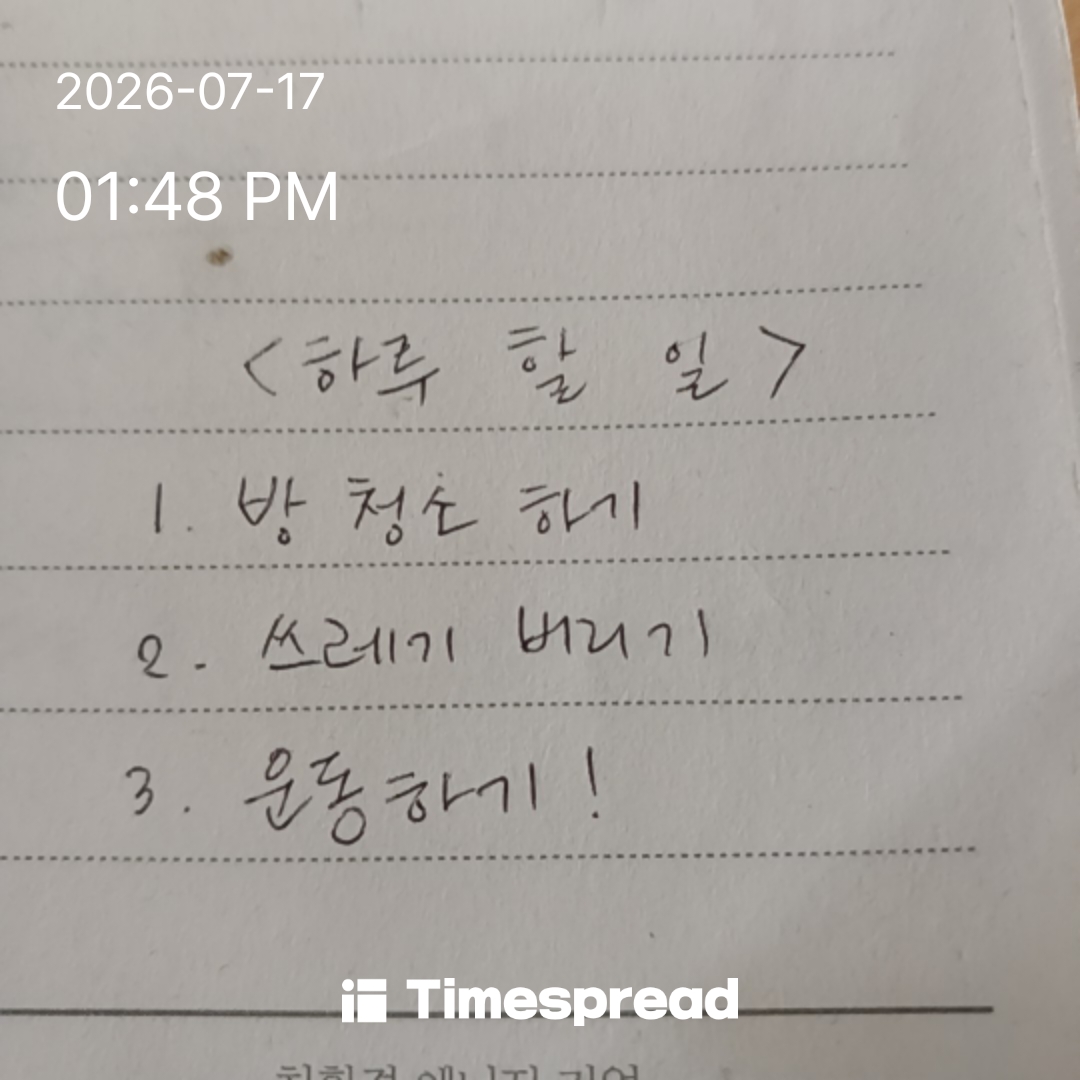 2026-07-17
01:48 PM
<하루 할 일>
1. 방 청소 하기
2. 쓰레기 버리기
3. 운동하기!
Timespread
친환경 에너지 기업